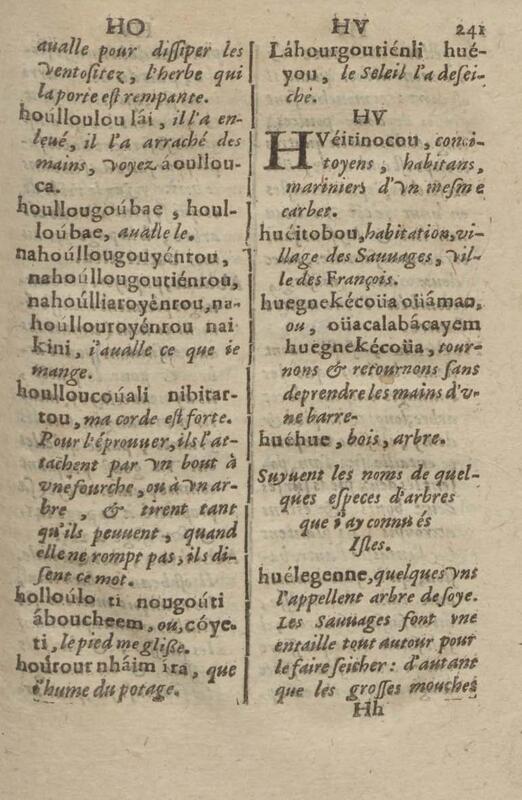 HO
HV
241
aualle pour dissiper les
ventositez, l'herbe qui
la porte est rempante.
houlloulou lái, il l'a en-
leué, il l'a arraché des
mains, voyez áoullou-
ca.
houllougoúbae, houl-
loúbae, aualle le.
nahoúllougouyéntou,
nahoúllougoutiénrou,
nahoúlliatoyénrou, na-
hoúllouroyénrou nai
kini, i'aualle ce que ie
mange.
houlloucoúali nibitar-
tou, ma corde est forte.
Pour l'éprouuer, ils l'at-
tachent par vn bout à
vne fourche, ou à vn ar-
bre, & tirent tant
qu'ils peuuent, quand
elle ne rompt pas, ils di-
sent ce mot.
holloúlo ti nougoúti
áboucheem, ou, cóye-
ti, le pied me glisse.
hoúrour nháim ira, que
i'hume du potage.
Láhourgoutiénli hué-
you, le Soleil l'a desei-
ché.
HV
HVéitinocou, conci-
toyens, habitans,
mariniers d'vn mesme
carbet.
huéitobou, habitation, vi-
llage des Sauuages, vil-
le des François.
huegnekécoüa oüáman,
ou, oüacalabácayem
huegnekécoüa, tour-
nons & retournons sans
deprendre les mains d'v-
ne barre.
huéhue, bois, arbre.
Suyuent les noms de quel-
ques especes d'arbres
que i'ay connu és
Isles.
huélegenne, quelques vns
l'appellent arbre de soye.
Les Sauuages font vne
entaille tout autour pour
le faire seicher: d'autant
que les grosses mouches
Hh